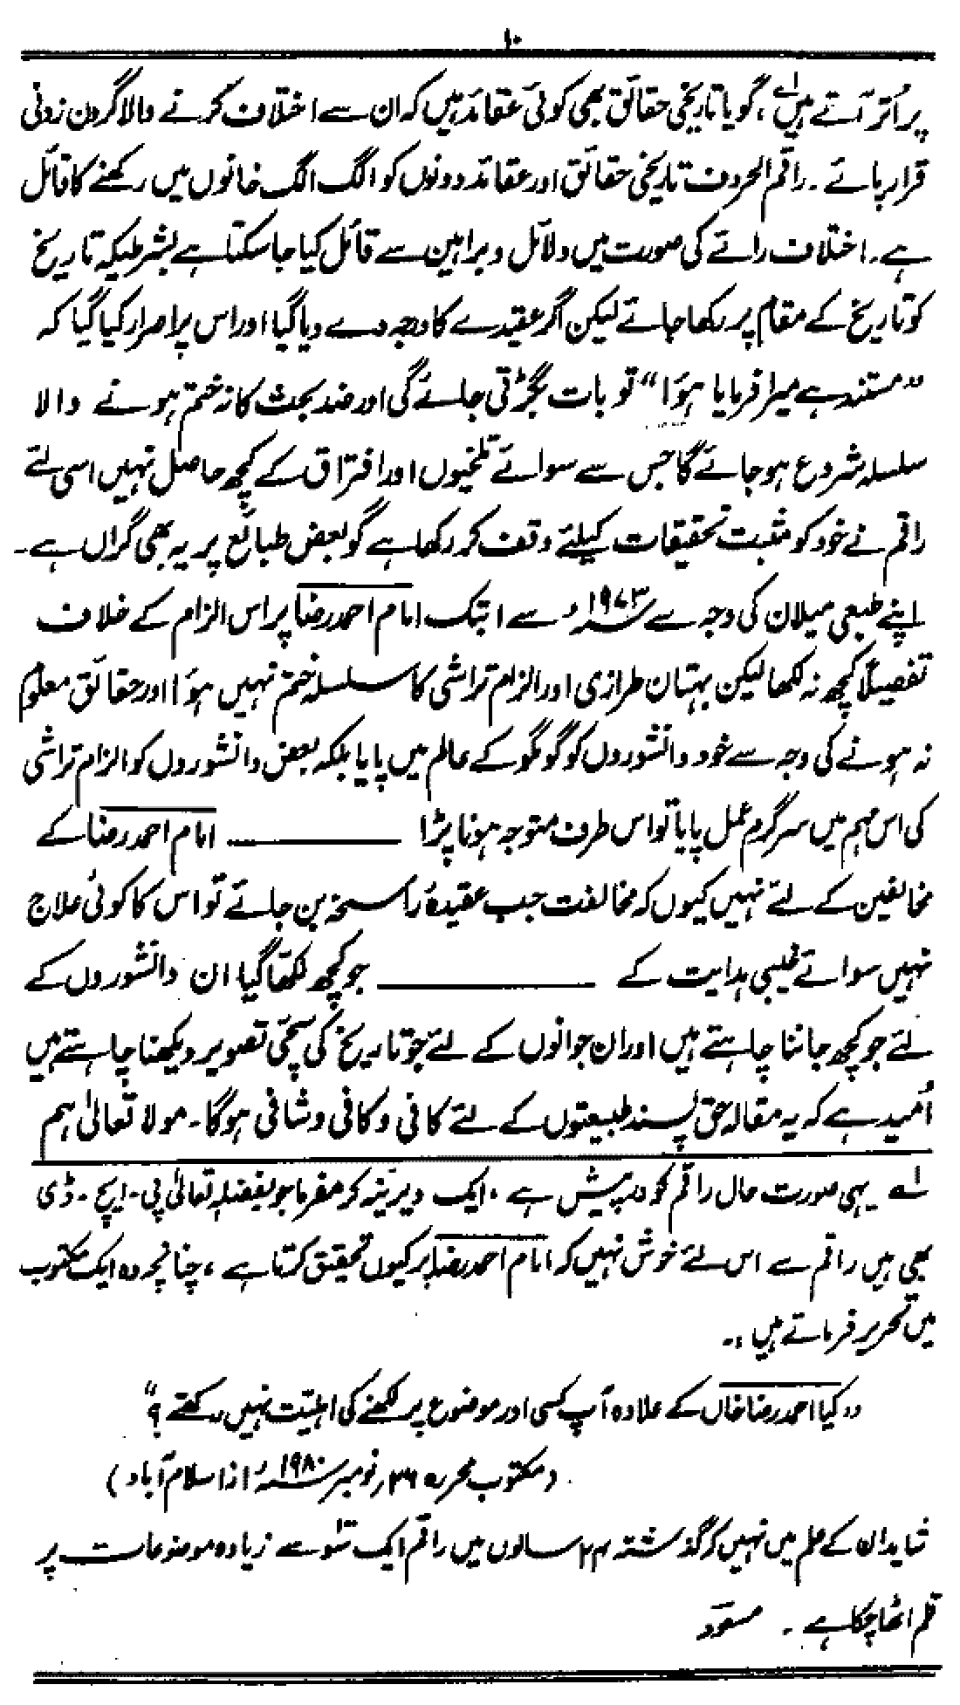 ۱۰
پر اُتر آتے ہیں؂۱، گویا تاریخی حقائق بھی کوئی عقائد ہیں کہ ان سے اختلاف کرنے والا گردن زدنی
قرار پائے ۔ راقم الحروف تاریخی حقائق اور عقائد دونوں کو الگ الگ خانوں میں رکھنے کا قائل
ہے۔ اختلاف رائے کی صورت میں دلائل و براہین سے قائل کیا جا سکتا ہے بشرطیکہ تاریخ
کو تاریخ کے مقام پر رکھا جائے لیکن اگر عقیدے کا درجہ دے دیا گیا اور اس پر اصرار کیا گیا کہ
”مستند ہے میرا فرمایا ہوٗا“ تو بات بگڑتی جائے گی اور ضد بحث کا نہ ختم ہونے والا
سلسلہ شروع ہو جائے گا جس سے سوائے تلخیوں اور افتراق کے کچھ حاصل نہیں اسی لئے
راقم نے خود کو مثبت تحقیقات کیلئے وقف کر رکھا ہے گو بعض طبائع پر یہ بھی گراں ہے۔
اپنے طبعی میلان کی وجہ سے ۱۹۷۳ء سے ابتک امام احمد رضا پر اس الزام کے خلاف
تفصیلاً کچھ نہ لکھا لیکن بہتان طرازی اور الزام تراشی کا سلسلہ ختم نہیں ہوٗا اور حقائق معلوم
نہ ہونے کی وجہ سے خود دانشوروں کو گومگو کے عالم میں پایا بلکہ بعض دانشوروں کو الزام تراشی
کی اس مہم میں سرگرم عمل پایا تو اس طرف متوجہ ہونا پڑا ــــــــــــ امام احمد رضا کے
مخالفین کے لئے نہیں کیوں کہ مخالفت جب عقیدۂ راسخہ بن جائے تو اس کا کوئی علاج
نہیں سوائے غیبی ہدایت کے ــــــــــــ جو کچھ لکھا گیا ان دانشوروں کے
لئے جو کچھ جاننا چاہتے ہیں اور ان جوانوں کے لئے جو تاریخ کی سچی تصویر دیکھنا چاہتے ہیں
اُمید ہے کہ یہ مقالہ حق پسند طبیعتوں کے لئے کافی و کافی و شافی ہوگا۔ مولا تعالیٰ ہم
؂۱ یہی صورت حال راقم کو درپیش ہے ، ایک دیرینہ کرمفرما جو بفضلہ تعالیٰ پی۔ ایچ۔ ڈی
بھی ہیں راقم سے اس لئے خوش نہیں کہ امام احمد رضا پر کیوں تحقیق کرتا ہے ، چنانچہ وہ ایک مکتوب
میں تحریر فرماتے ہیں :۔
”کیا احمد رضا خاں کے علاوہ آپ کسی اور موضوع پر لکھنے کی اہلیت نہیں رکھتے ؟“
(مکتوب محررہ ۲۶؍نومبر ۱۹۸۰ء از اسلام آباد)
شاید ان کے علم میں نہیں کہ گذشتہ ۲۴ سالوں میں راقم ایک سَو سے زیادہ موضوعات پر
قلم اٹھا چکا ہے ۔ مسعود